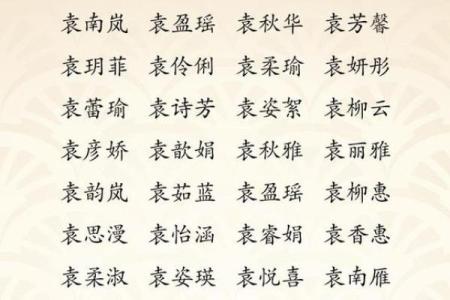 袁南岚 袁盈瑶 袁秋华 袁芳馨
袁玥菲 袁伶俐 袁柔瑜 袁妍彤
袁蕾瑜 袁诗芳 袁姿絮 袁柳云
袁彦娇 袁歆娟 袁秋雅 袁丽雅
袁韵岚 袁茹蓝 袁盈瑶 袁柳惠
袁思漫 袁怡涵 袁睿娟 袁香惠
袁柔淑 袁姿瑛 袁悦喜 袁南雁